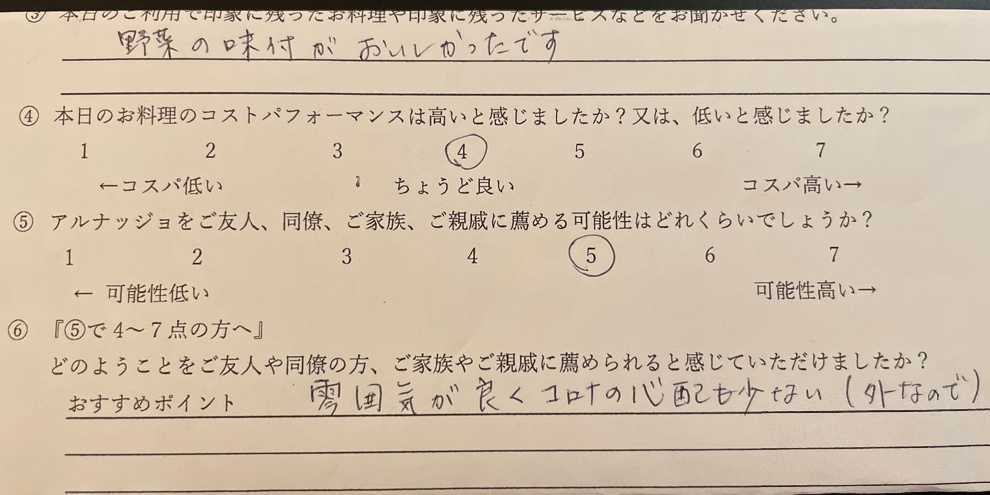 ③ 本日のご利用で印象に残ったお料理や印象に残ったサービスなどをお聞かせください。
野菜の味付がおいしかったです
④ 本日のお料理のコストパフォーマンスは高いと感じましたか？又は、低いと感じましたか？
1 2 3 4 5 6 7
←コスパ低い ちょうど良い コスパ高い→
⑤ アルナッジョをご友人、同僚、ご家族、ご親戚に薦める可能性はどれくらいでしょうか？
1 2 3 4 5 6 7
← 可能性低い 可能性高い→
⑥ 『⑤で4～7点の方へ』
どのようことをご友人や同僚の方、ご家族やご親戚に薦められると感じていただけましたか？
おすすめポイント 雰囲気が良くコロナの心配も少ない（外なので）